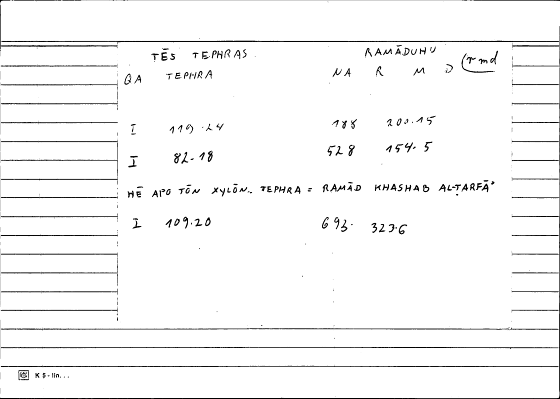 TĒS TEPHRAS RAMĀDUHU
QA TEPHRA NA R M D (rmd
I 119.24 188 200.15
I 82.18 528 154.5
HĒ APO TŌN XYLŌN. TEPHRA = RAMĀD KHASHAB AL-ṬARFĀ'
I 109.20 693. 323.6
K 5 - lin...